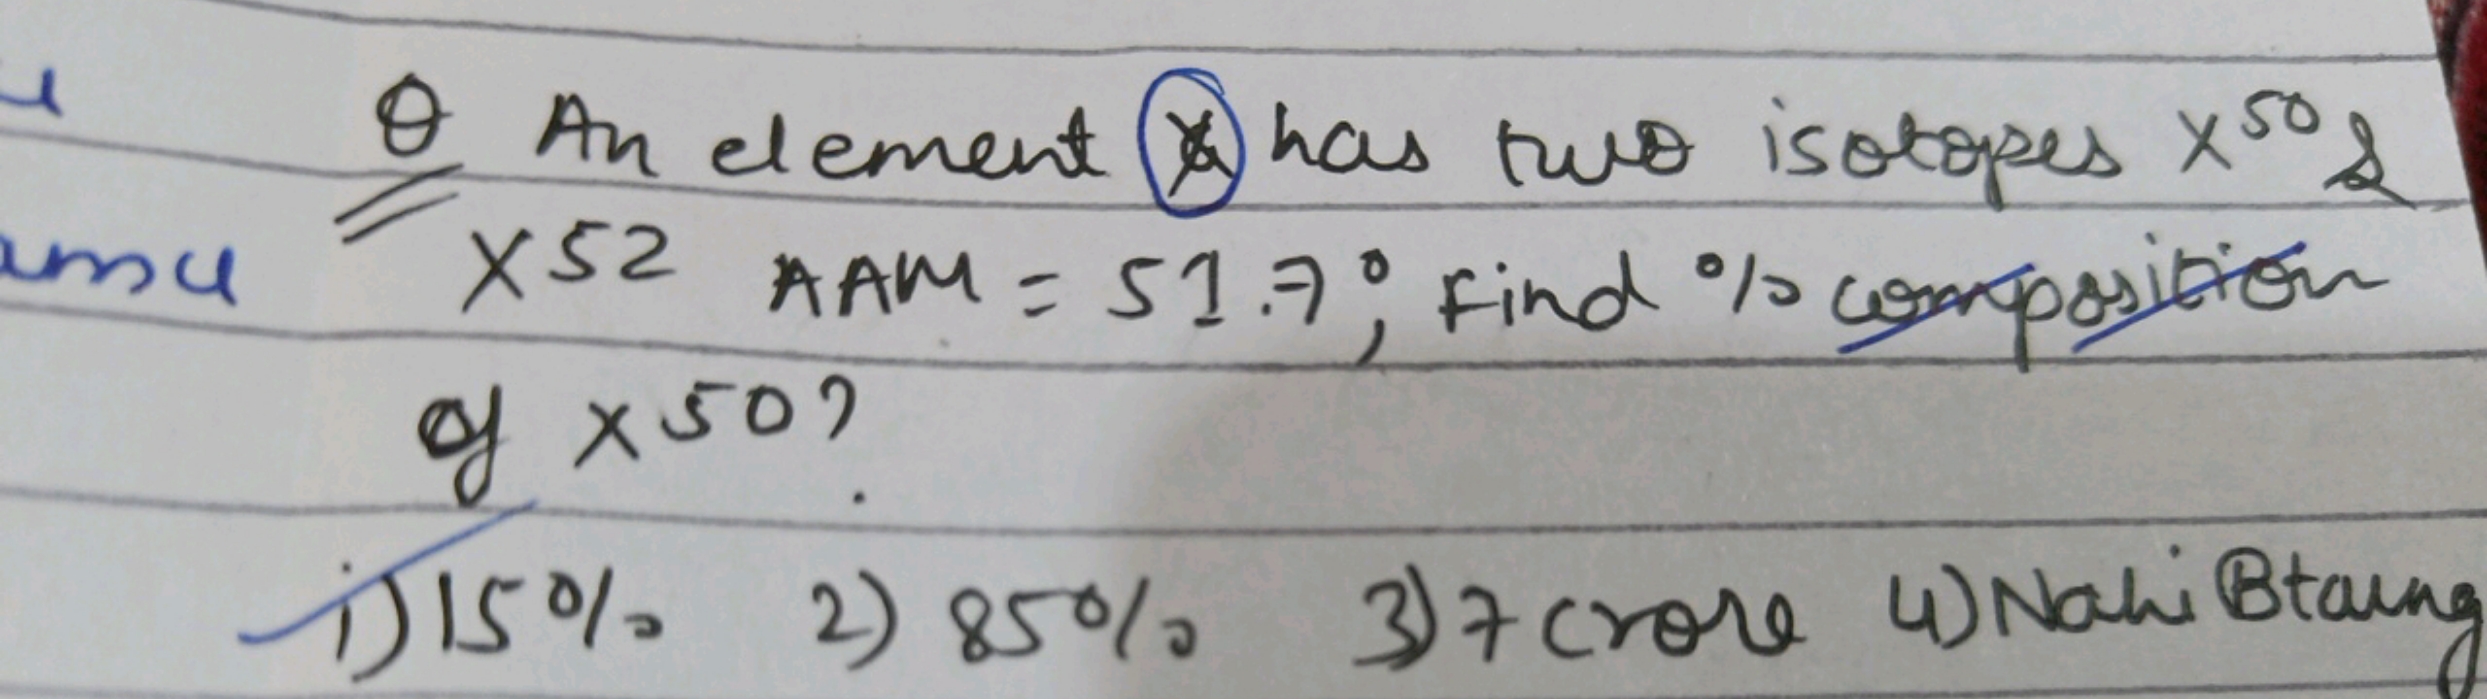 u
Q An element X has two isotopes X⁵⁰ &
amu X52 AAM = 51.7; Find % composition
of X50?
i) 15% 2) 85% 3) 7 crore 4) Nahi Btaung